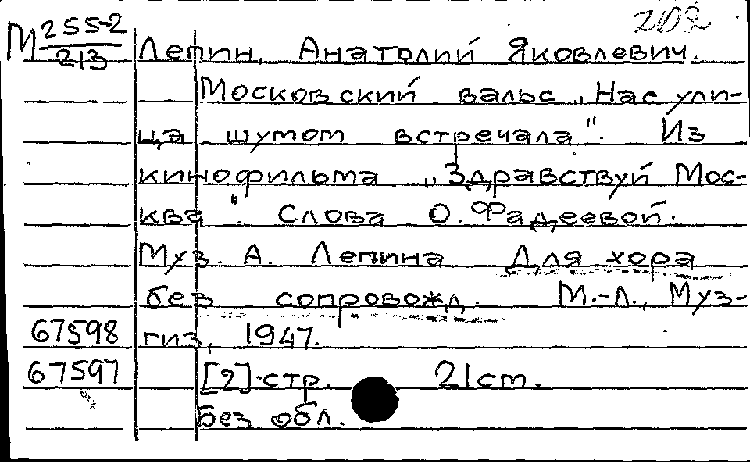 202
М 255-2/213 Лепин, Анатолий Яковлевич.
Московский вальс „Нас ули-
ца шумом встречала". Из
кинофильма „Здравствуй Мос-
ква". Слова О. Фадеевой.
Муз. А. Лепина Для хора
без сопровожд. М.-Л., Муз-
67598 гиз, 1947.
67597 [2] стр. 21 см.
Без обл.